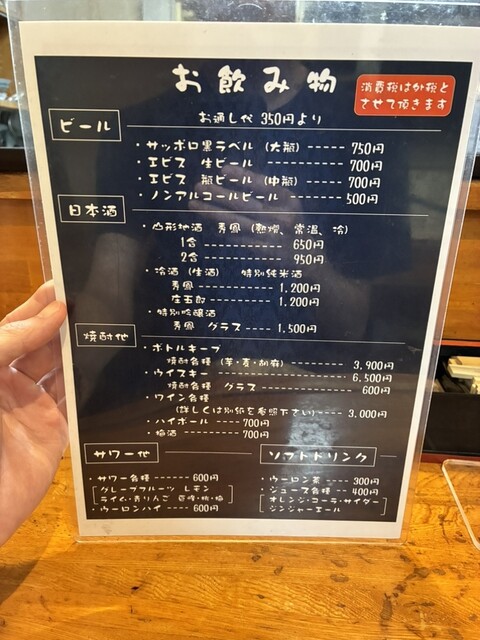 お飲み物
消費税は外税と
させて頂きます
お通し代 350円より
ビール
・サッポロ黒ラベル (大瓶) ------ 750円
・エビス 生ビール ------------ 700円
・エビス 瓶ビール (中瓶) ------ 700円
・ノンアルコールビール -------- 500円
日本酒
・山形地酒 秀鳳 (熱燗、常温、冷)
1合 ------------ 650円
2合 ------------ 950円
・冷酒 (生酒) 特別純米酒
秀鳳 ---------- 1,200円
庄五郎 -------- 1,200円
・特別吟醸酒
秀鳳 グラス ---- 1,500円
焼酎他
・ボトルキープ
焼酎各種 (芋・麦・胡麻) ---------- 3,900円
・ウイスキー -------------------- 6,500円
焼酎各種 グラス -------------- 600円
・ワイン各種
(詳しくは別紙を参照下さい)---- 3,000円
・ハイボール ---- 700円
・梅酒 -------- 700円
サワー他
・サワー各種 ------ 600円
[グレープフルーツ レモン
ライム・青りんご 巨峰・桃・梅]
・ウーロンハイ ---- 600円
ソフトドリンク
・ウーロン茶 ---- 300円
・ジュース各種 -- 400円
[オレンジ・コーラ・サイダー
ジンジャーエール]